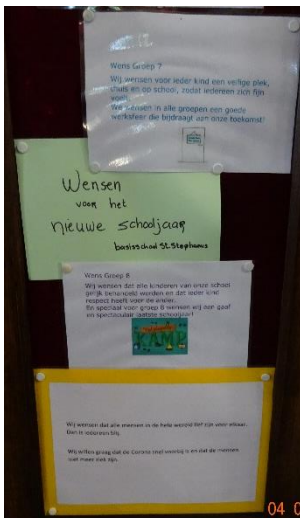 Wens Groep 7
Wij wensen voor ieder kind een veilige plek,
thuis en op school, zodat iedereen zich fijn
voelt.
We wensen in alle groepen een goede
werksfeer die bijdraagt aan onze toekomst!
Wensen
voor het
nieuwe schooljaar
basisschool St. Stephanus
Wens Groep 8
Wij wensen dat alle kinderen van onze school
gelijk behandeld worden en dat ieder kind
respect heeft voor de ander.
En speciaal voor groep 8 wensen wij een gaaf
en spectaculair laatste schooljaar!
KAMP
Wij wensen dat alle mensen in de hele wereld lief zijn voor elkaar.
Dan is iedereen blij.
Wij willen graag dat de Corona snel voorbij is en dat de mensen
niet meer ziek zijn.
04 0